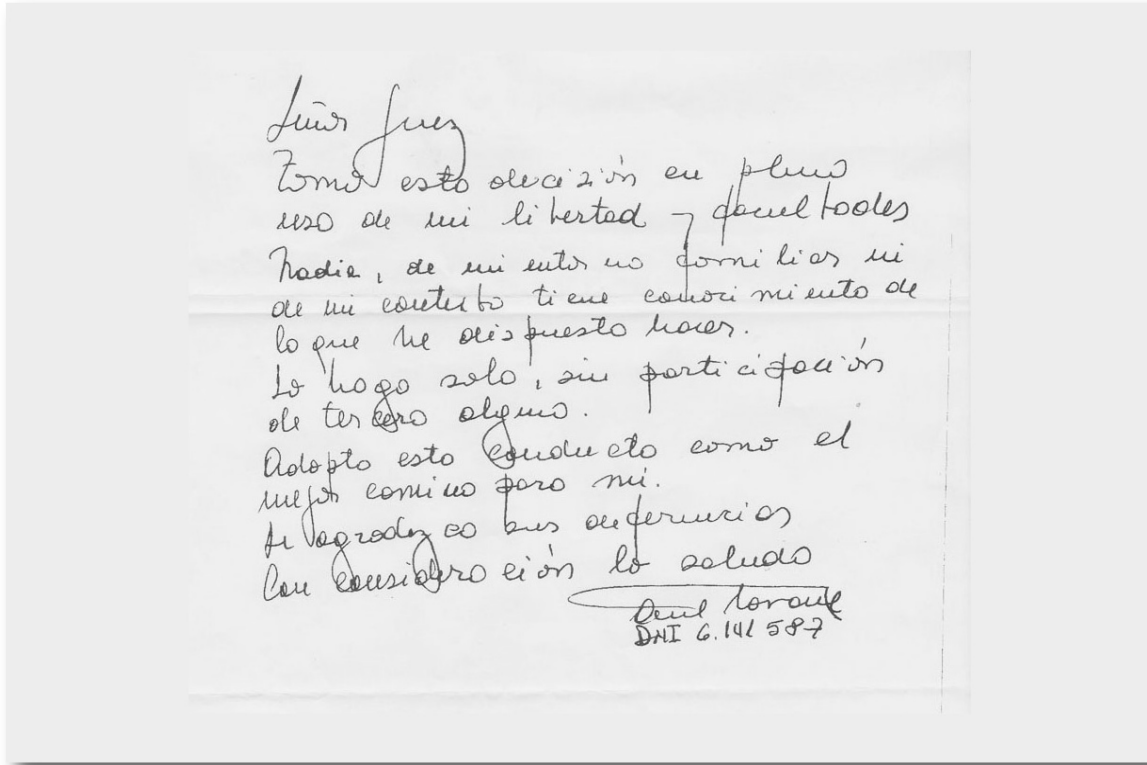 Señor Juez
Tomo esta decisión en pleno
uso de mi libertad y facultades
Nadie, de mi entorno familiar ni
de mi contexto tiene conocimiento de
lo que he dispuesto hacer.
Lo hago solo, sin participación
de tercero alguno.
Adopto esta conducta como el
mejor camino para mi.
Le agradezco sus deferencias
Con consideración lo saludo
DNI 6.141 587